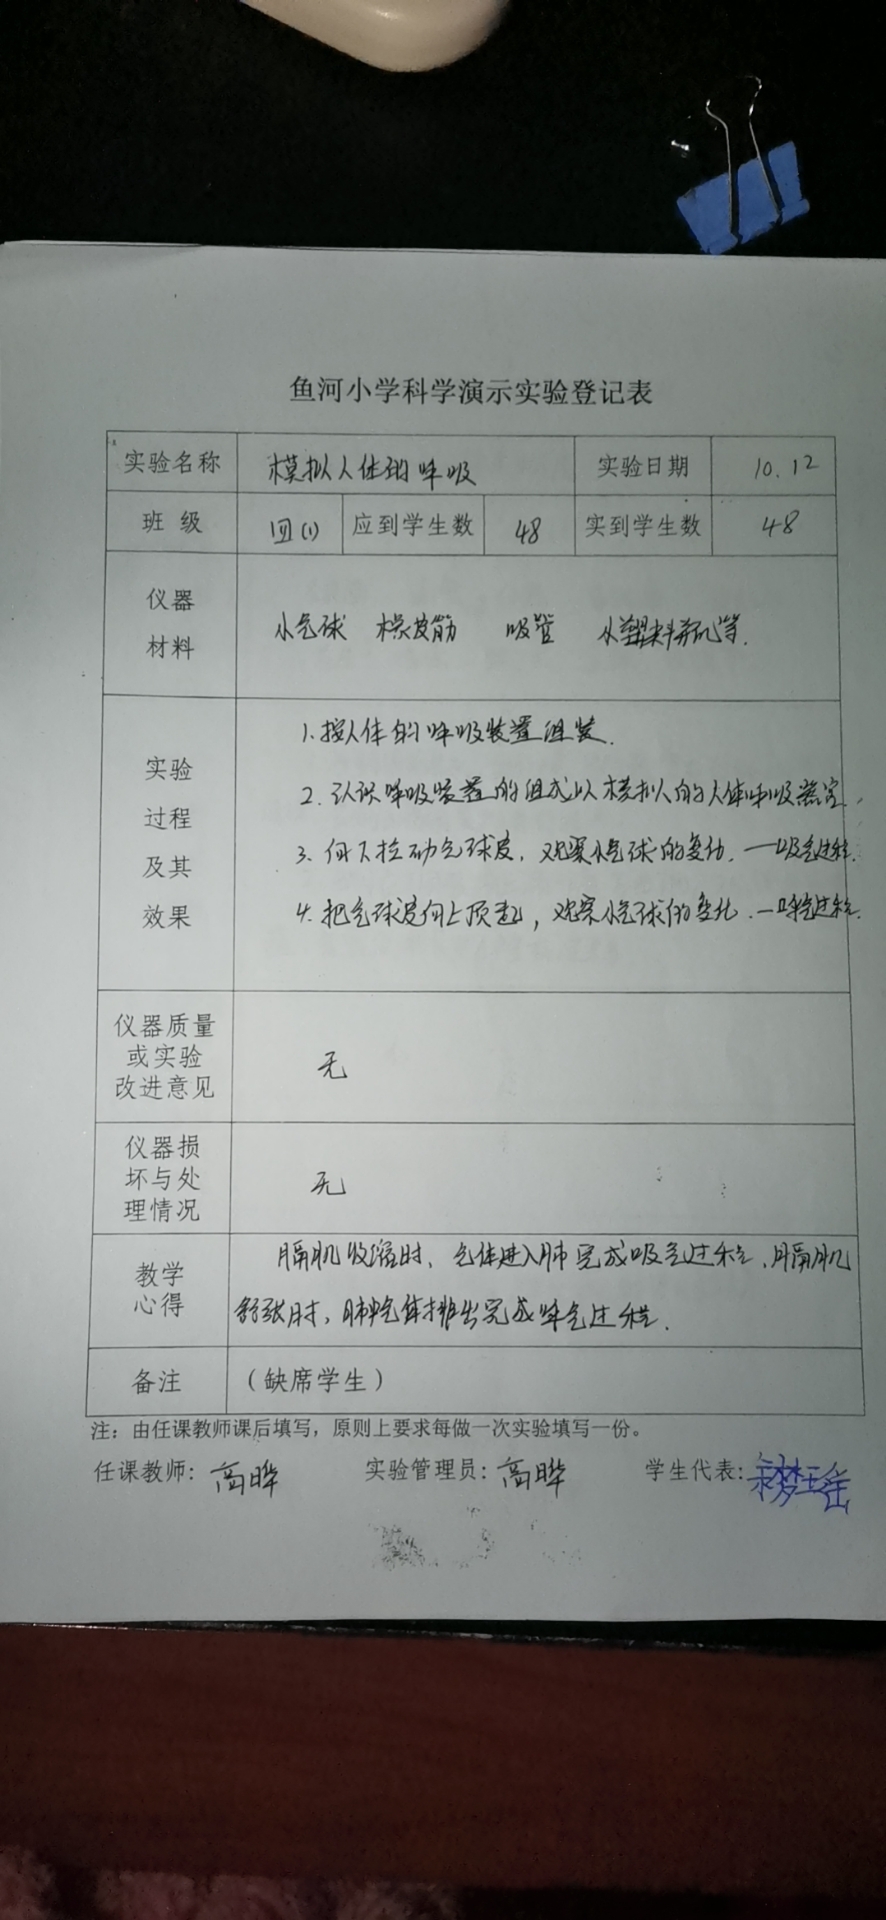 鱼河小学科学演示实验登记表
实验名称 模拟人体的呼吸 实验日期 10.12
班 级 四(1) 应到学生数 48 实到学生数 48
仪器
材料
小气球 橡皮筋 吸管 小塑料瓶等.
实验
过程
及其
效果
1.按人体的呼吸装置组装.
2.认识呼吸装置的组成以模拟人的人体呼吸器官.
3.向下拉动气球皮,观察小气球的变化.—吸气过程.
4.把气球皮向上顶起,观察小气球的变化.—呼气过程.
仪器质量
或实验
改进意见
无
仪器损
坏与处
理情况
无
教学
心得
膈肌收缩时、气体进入肺完成吸气过程、膈肌
舒张时、肺气体排出完成呼气过程.
备注 （缺席学生）
注：由任课教师课后填写，原则上要求每做一次实验填写一份。
任课教师：高晔 实验管理员：高晔 学生代表：